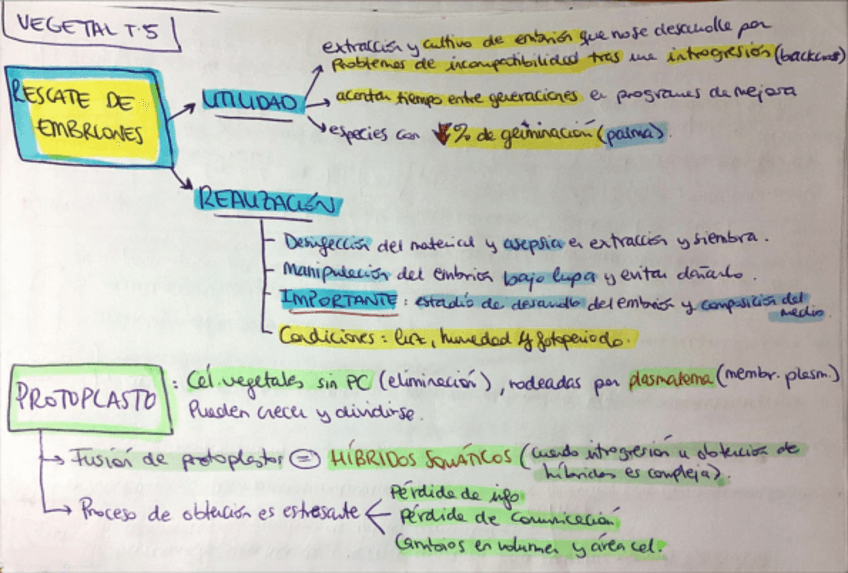 VEGETAL T.5
RESCATE DE
EMBRIONES
UTILIDAD
extracción y cultivo de embrión que no se desarrolle por
Problemas de incompatibilidad tras una introgresión (backcross)
acortar tiempo entre generaciones en programas de mejora
especies con ↓% de germinación (palma).
REALIZACIÓN
Desinfección del material y asepsia en extracción y siembra.
Manipulación del embrión bajo lupa y evitar dañarlo.
IMPORTANTE: estadío de desarrollo del embrión y composición del
medio.
Condiciones: luz, humedad y fotoperiodo.
PROTOPLASTO
: Cél. vegetales sin PC (eliminación), rodeadas por plasmalema (membr. plasm.)
Pueden crecer y dividirse.
Fusión de protoplastos = HÍBRIDOS SOMÁTICOS (cuando introgresión u obtención de
híbridos es compleja).
Proceso de obtención es estresante
Pérdida de info
Pérdida de comunicación
Cambios en volumen y área cel.